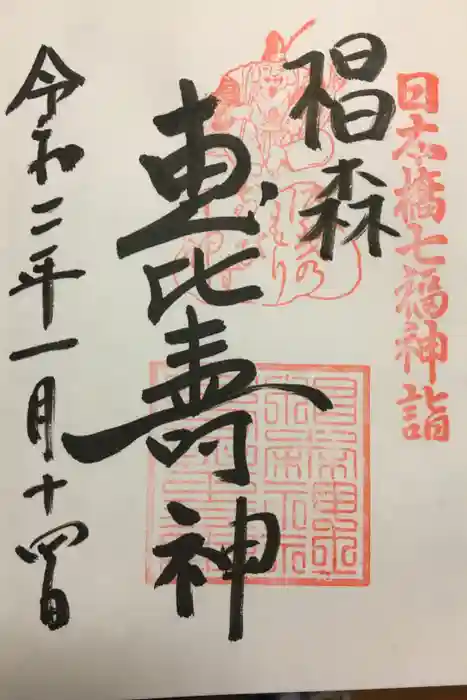 日本橋七福神詣
椙森
恵比寿神
令和二年一月十四日